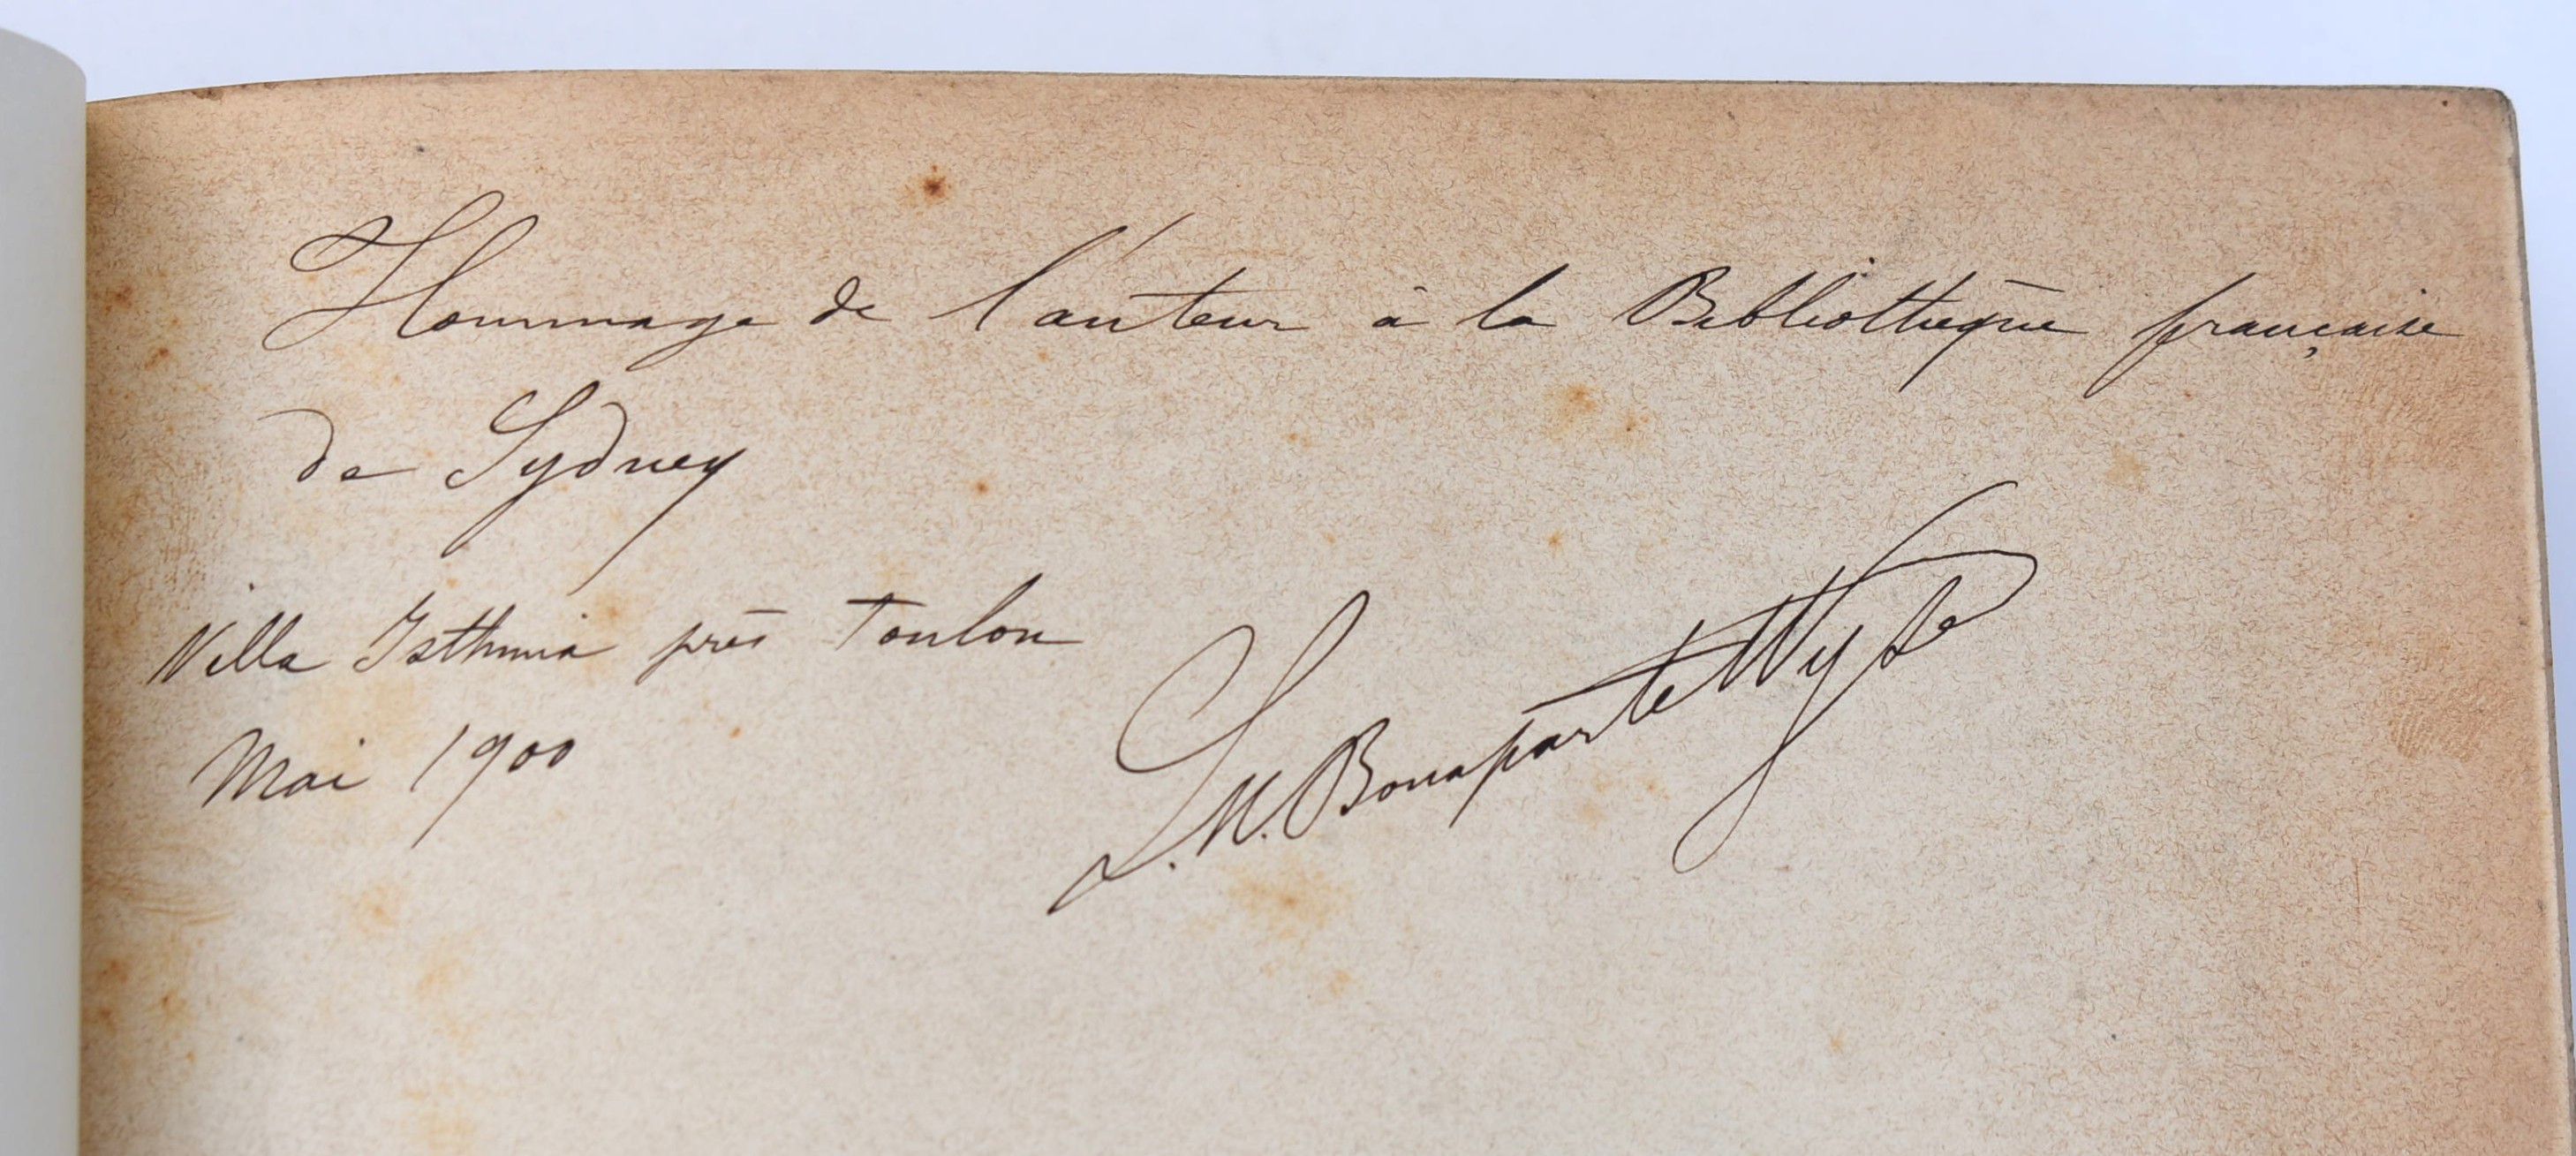 Hommage de l'auteur à la Bibliothèque française
de Sydney
Villa Isthmia près Toulon
Mai 1900
L. N. Bonaparte Wyse